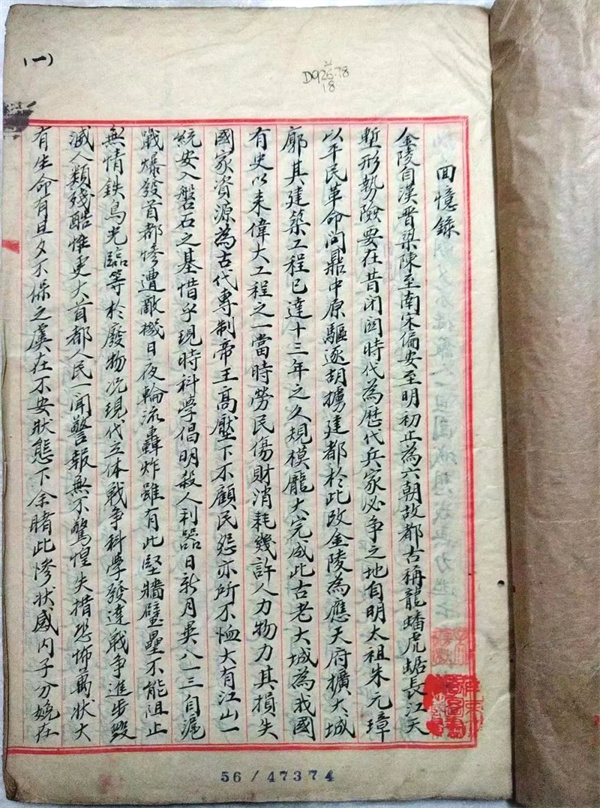 (一)
D926.78
18
回憶錄
金陵自漢晉梁陳至南宋偏安至明初正為六朝故都古稱龍蟠虎踞長江天
塹形勢險要在昔閉関時代為歷代兵家必爭之地自明太祖朱元璋
以平民革命问鼎中原驅逐胡擄建都於此改金陵為應天府擴大城
廓其建築工程已達十三年之久規模龐大完成此古老大城為我國
有史以来偉大工程之一當時勞民傷財消耗幾許人力物力其損失
國家資源為古代專制帝王高壓下不顧民怨亦所不恤大有江山一
統安入盤石之基惜乎現時科學倡明殺人利器日新月異八一三自滬
戰爆發首都慘遭敵機日夜輪流轟炸雖有此堅牆壁壘不能阻止
無情鉄鳥光臨等於廢物况現代立体戰争科學發達戰爭進步毀
滅人類殘酷惟更大首都人民一聞警報無不驚惶失措恐怖萬狀大
有生命有旦夕不保之虞在不安狀態下余睹此慘狀感内子分娩在
56/47374